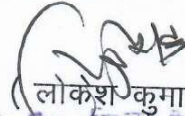 लोकेश कुमा